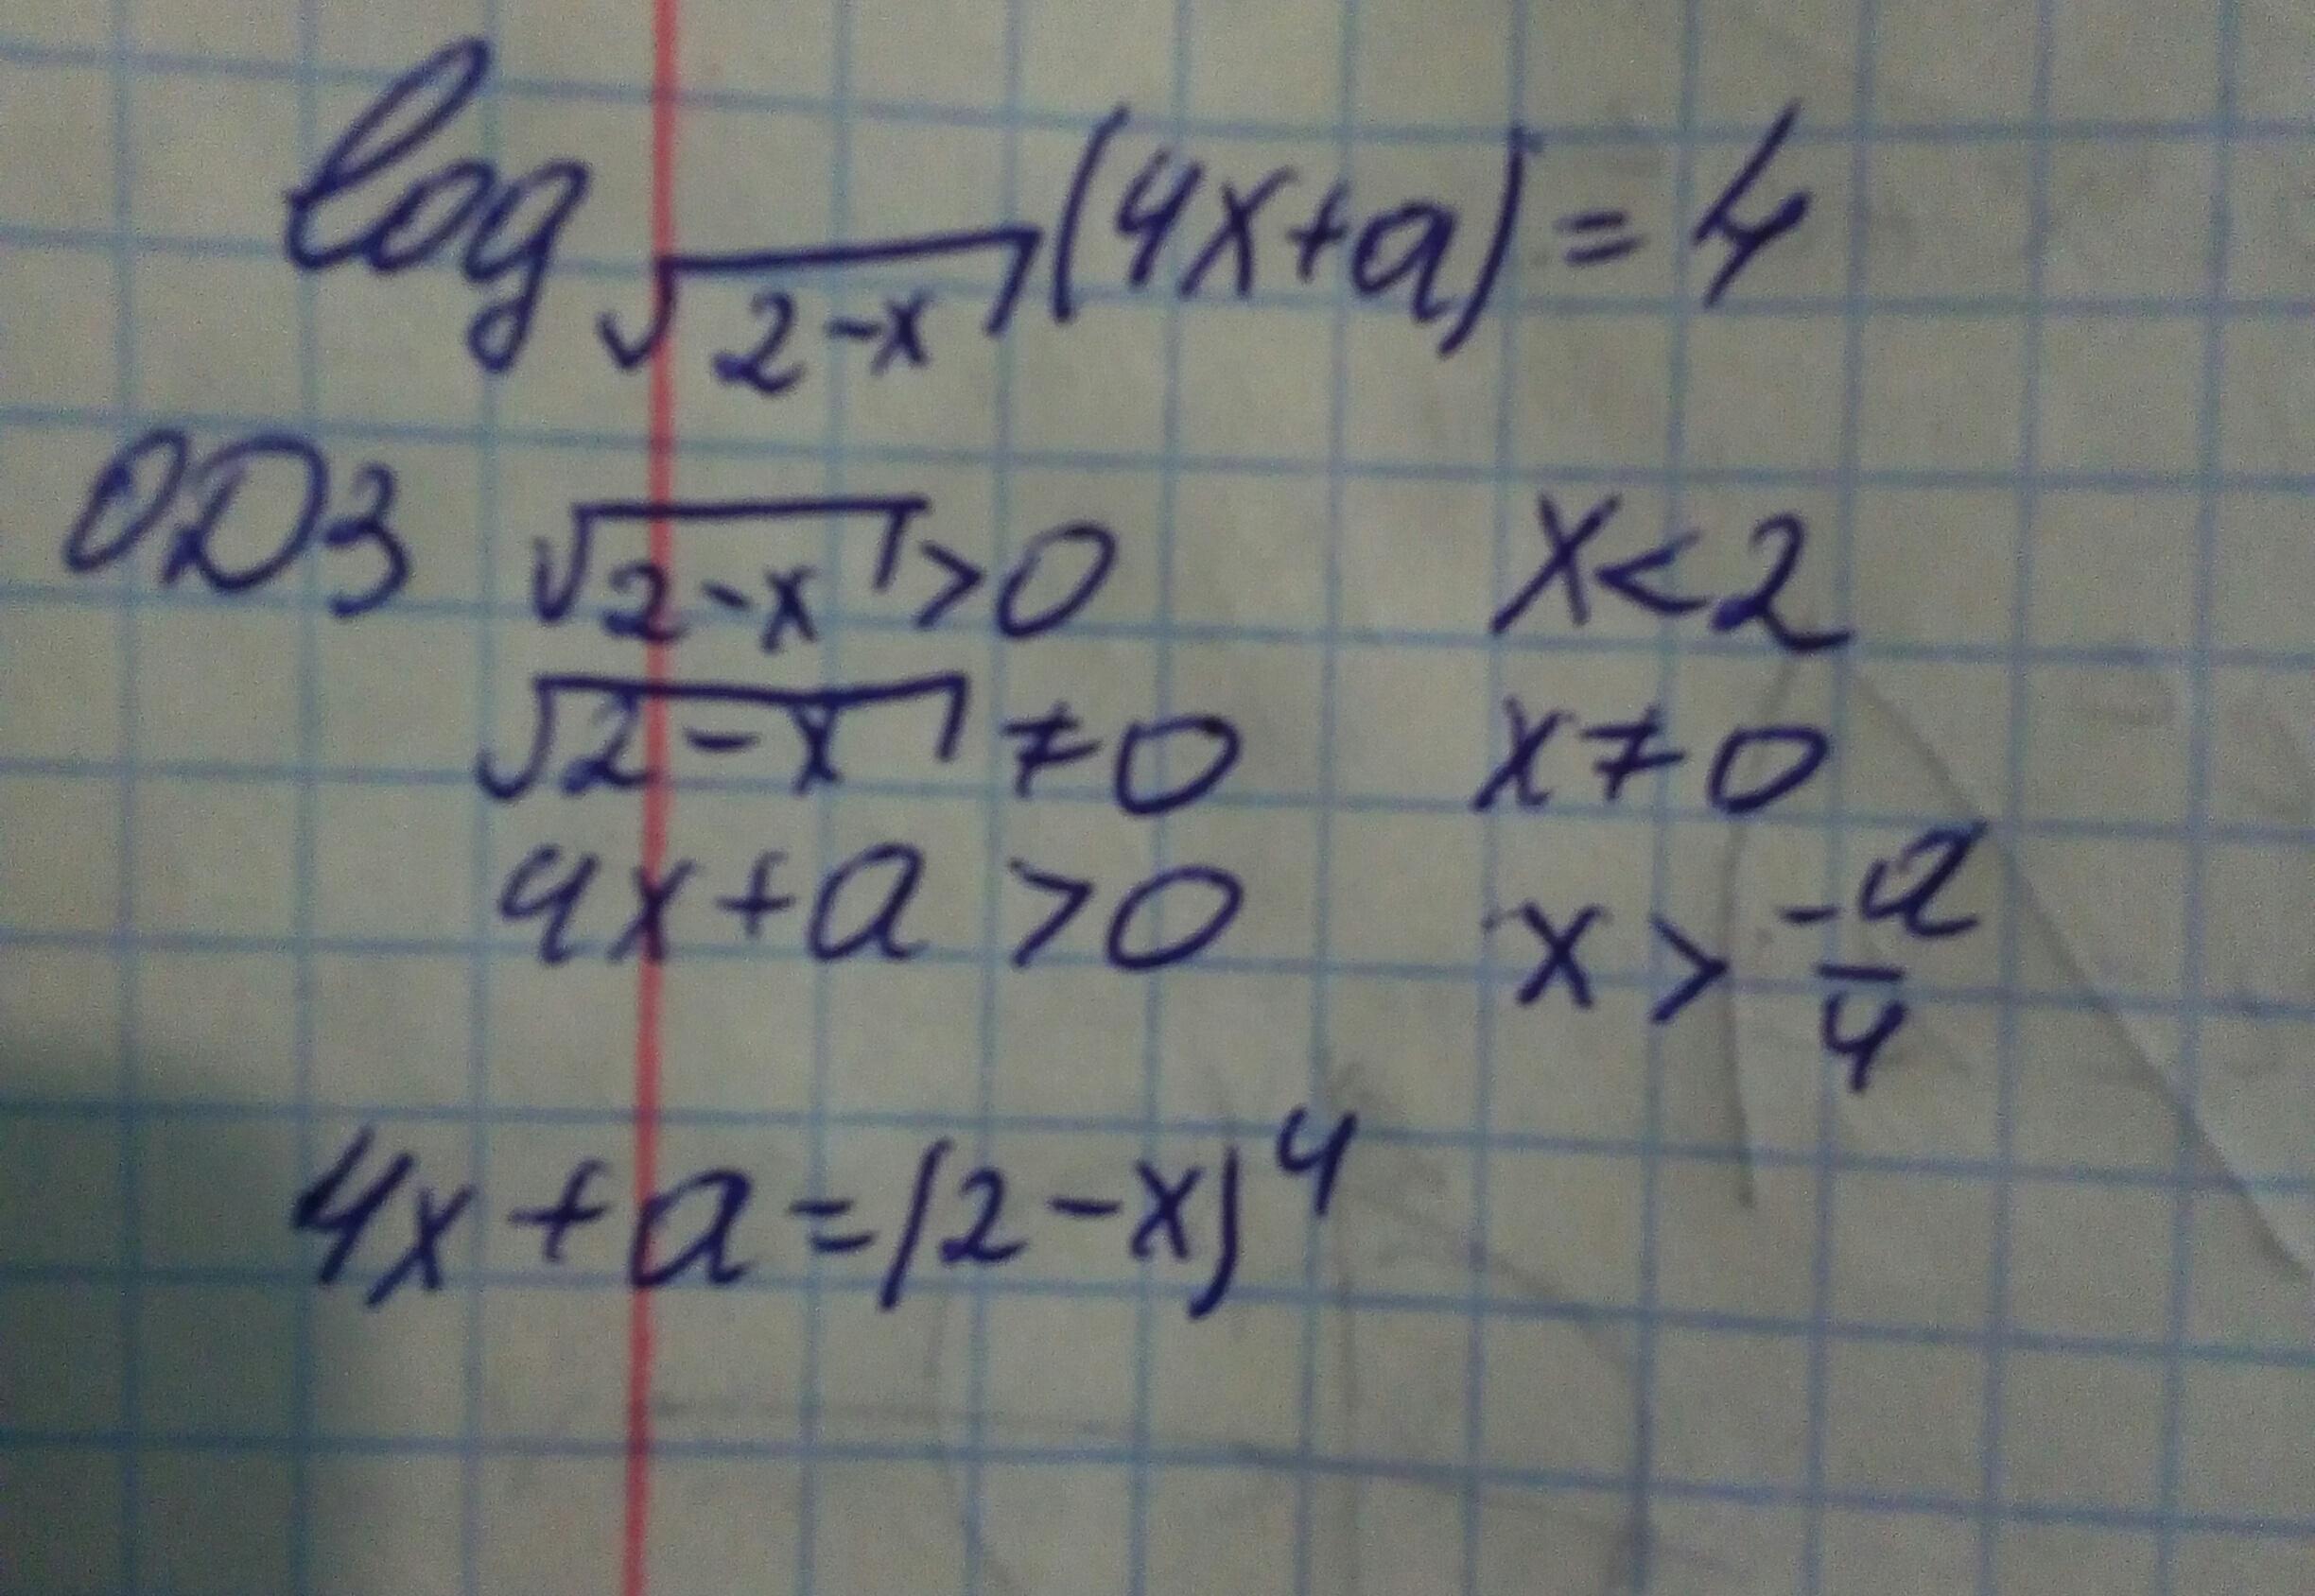 log √(2-x) (4x+a) = 4
ОДЗ √(2-x) > 0 x < 2
√(2-x) ≠ 0 x ≠ 0
4x+a > 0 x > -a/4
4x+a = (2-x)⁴